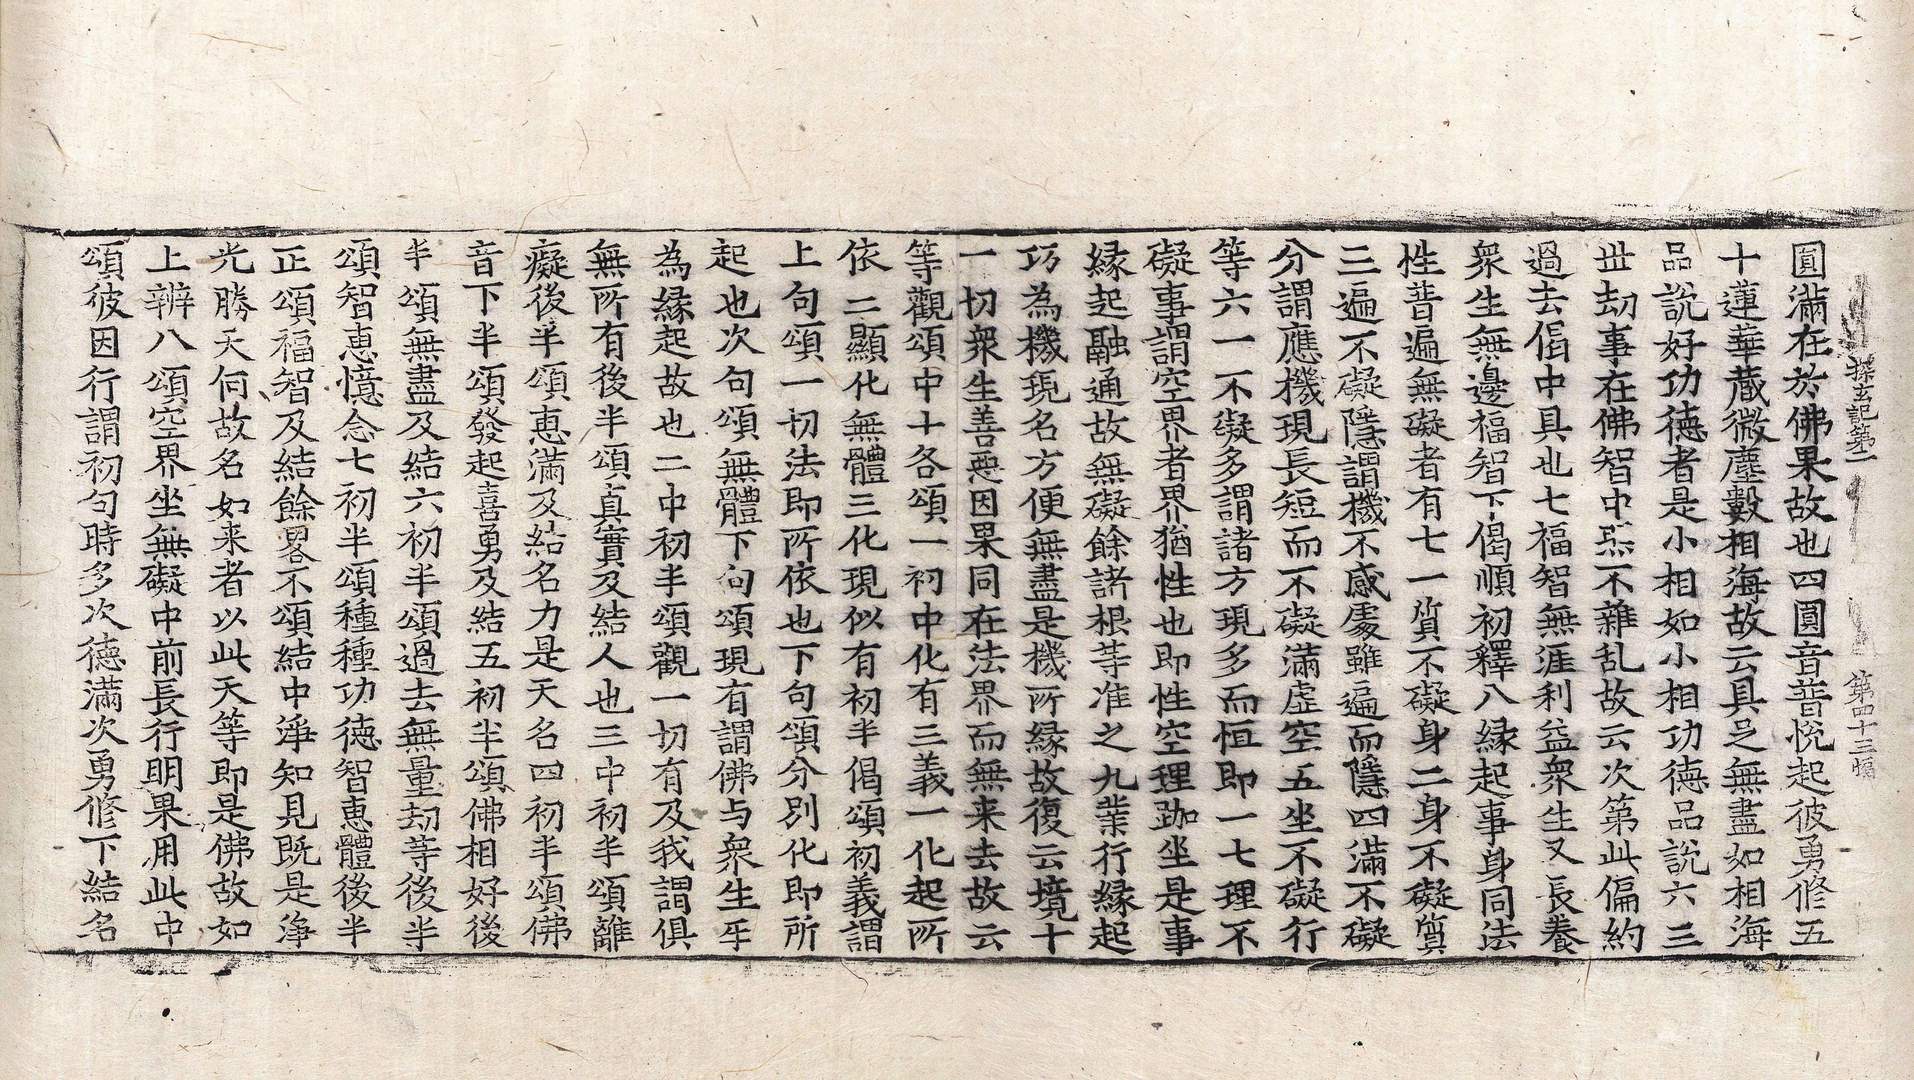 探玄記第二　第四十三幅
圓滿在於佛果故也四圓音普悅起彼勇修五
十蓮華蔵微塵數相海故云具足無盡如相海
品說好功德者是小相如小相功德品說六三
世劫事在佛智中炁不雜乱故云次第此偏約
過去偈中具也七福智無涯利益衆生又長養
衆生無邊福智下偈順初釋八緣起事身同法
性普遍無礙者有七一質不礙身二身不礙質
三遍不礙隱謂機不感處雖遍而隱四滿不礙
分謂應機現長短而不礙滿虛空五坐不礙行
等六一不礙多謂諸方現多而恒即一七理不
礙事謂空界者界猶性也即性空理跏坐是事
緣起融通故無礙餘諸根等准之九業行緣起
巧為機現名方便無盡是機所緣故復云境十
一切衆生善惡因果同在法界而無来去故云
等觀頌中十各頌一初中化有三義一化起所
依二顯化無體三化現似有初半偈頌初義謂
上句頌一切法即所依也下句頌分別化即所
起也次句頌無體下句頌現有謂佛与衆生互
為緣起故也二中初半頌觀一切有及我謂俱
無所有後半頌真實及結人也三中初半頌離
癡後半頌恵滿及結名力是天名四初半頌佛
音下半頌發起喜勇及結五初半頌佛相好後
半頌無盡及結六初半頌過去無量劫等後半
頌智恵憶念七初半頌種種功德智恵體後半
正頌福智及結餘畧不頌結中淨知見既是淨
光勝天何故名如来者以此天等即是佛故如
上辨八頌空界坐無礙中前長行明果用此中
頌彼因行謂初句時多次德滿次勇修下結名